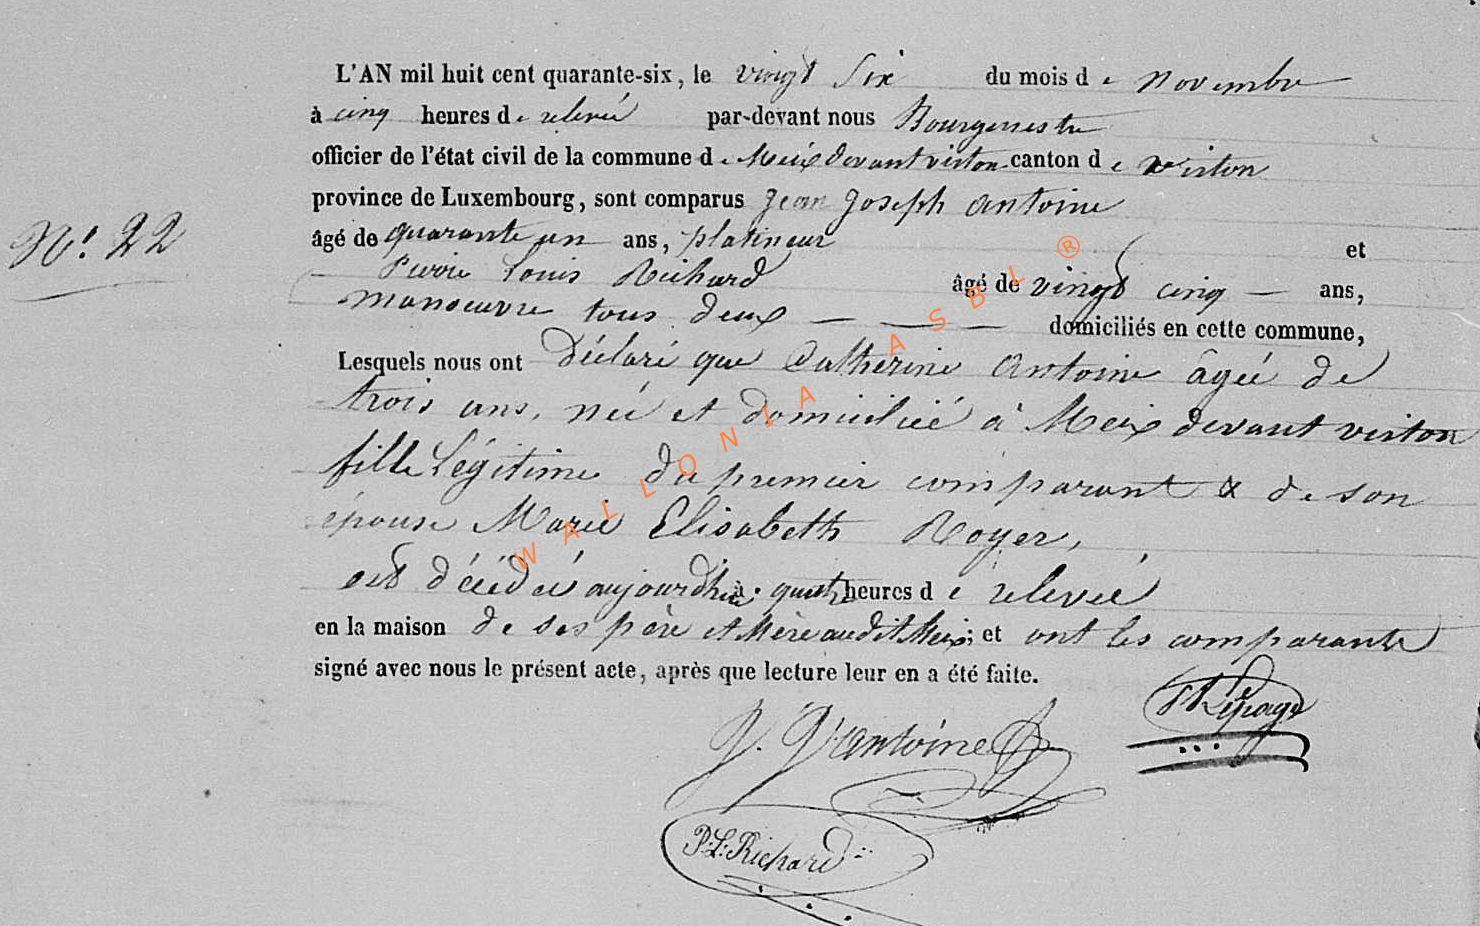 L'AN mil huit cent quarante-six, le vingt Six du mois de novembre
à cinq heures de relevée par-devant nous Bourgmestre
officier de l'état civil de la commune de Meix devant virton canton de virton
province de Luxembourg, sont comparus Jean Joseph antoine
Nº. 22
âgé de quarante un ans, platineur et
Pierre Louis Richard âgé de vingt cinq — ans,
manoeuvre tous deux — — — domiciliés en cette commune,
Lesquels nous ont Déclaré que Catherine Antoine âgée de
trois ans, née et domiciliée à Meix devant virton
fille Légitime du premier comparant & de son
épouse Marie Elisabeth Royer,
est décédée aujourd'hui à quatre heures de relevée
en la maison de ses père et Mère audit Meix; et ont les comparants
signé avec nous le présent acte, après que lecture leur en a été faite.
Lepage
J. J. antoine
P: L: Richard
WALLONIA ASBL ®